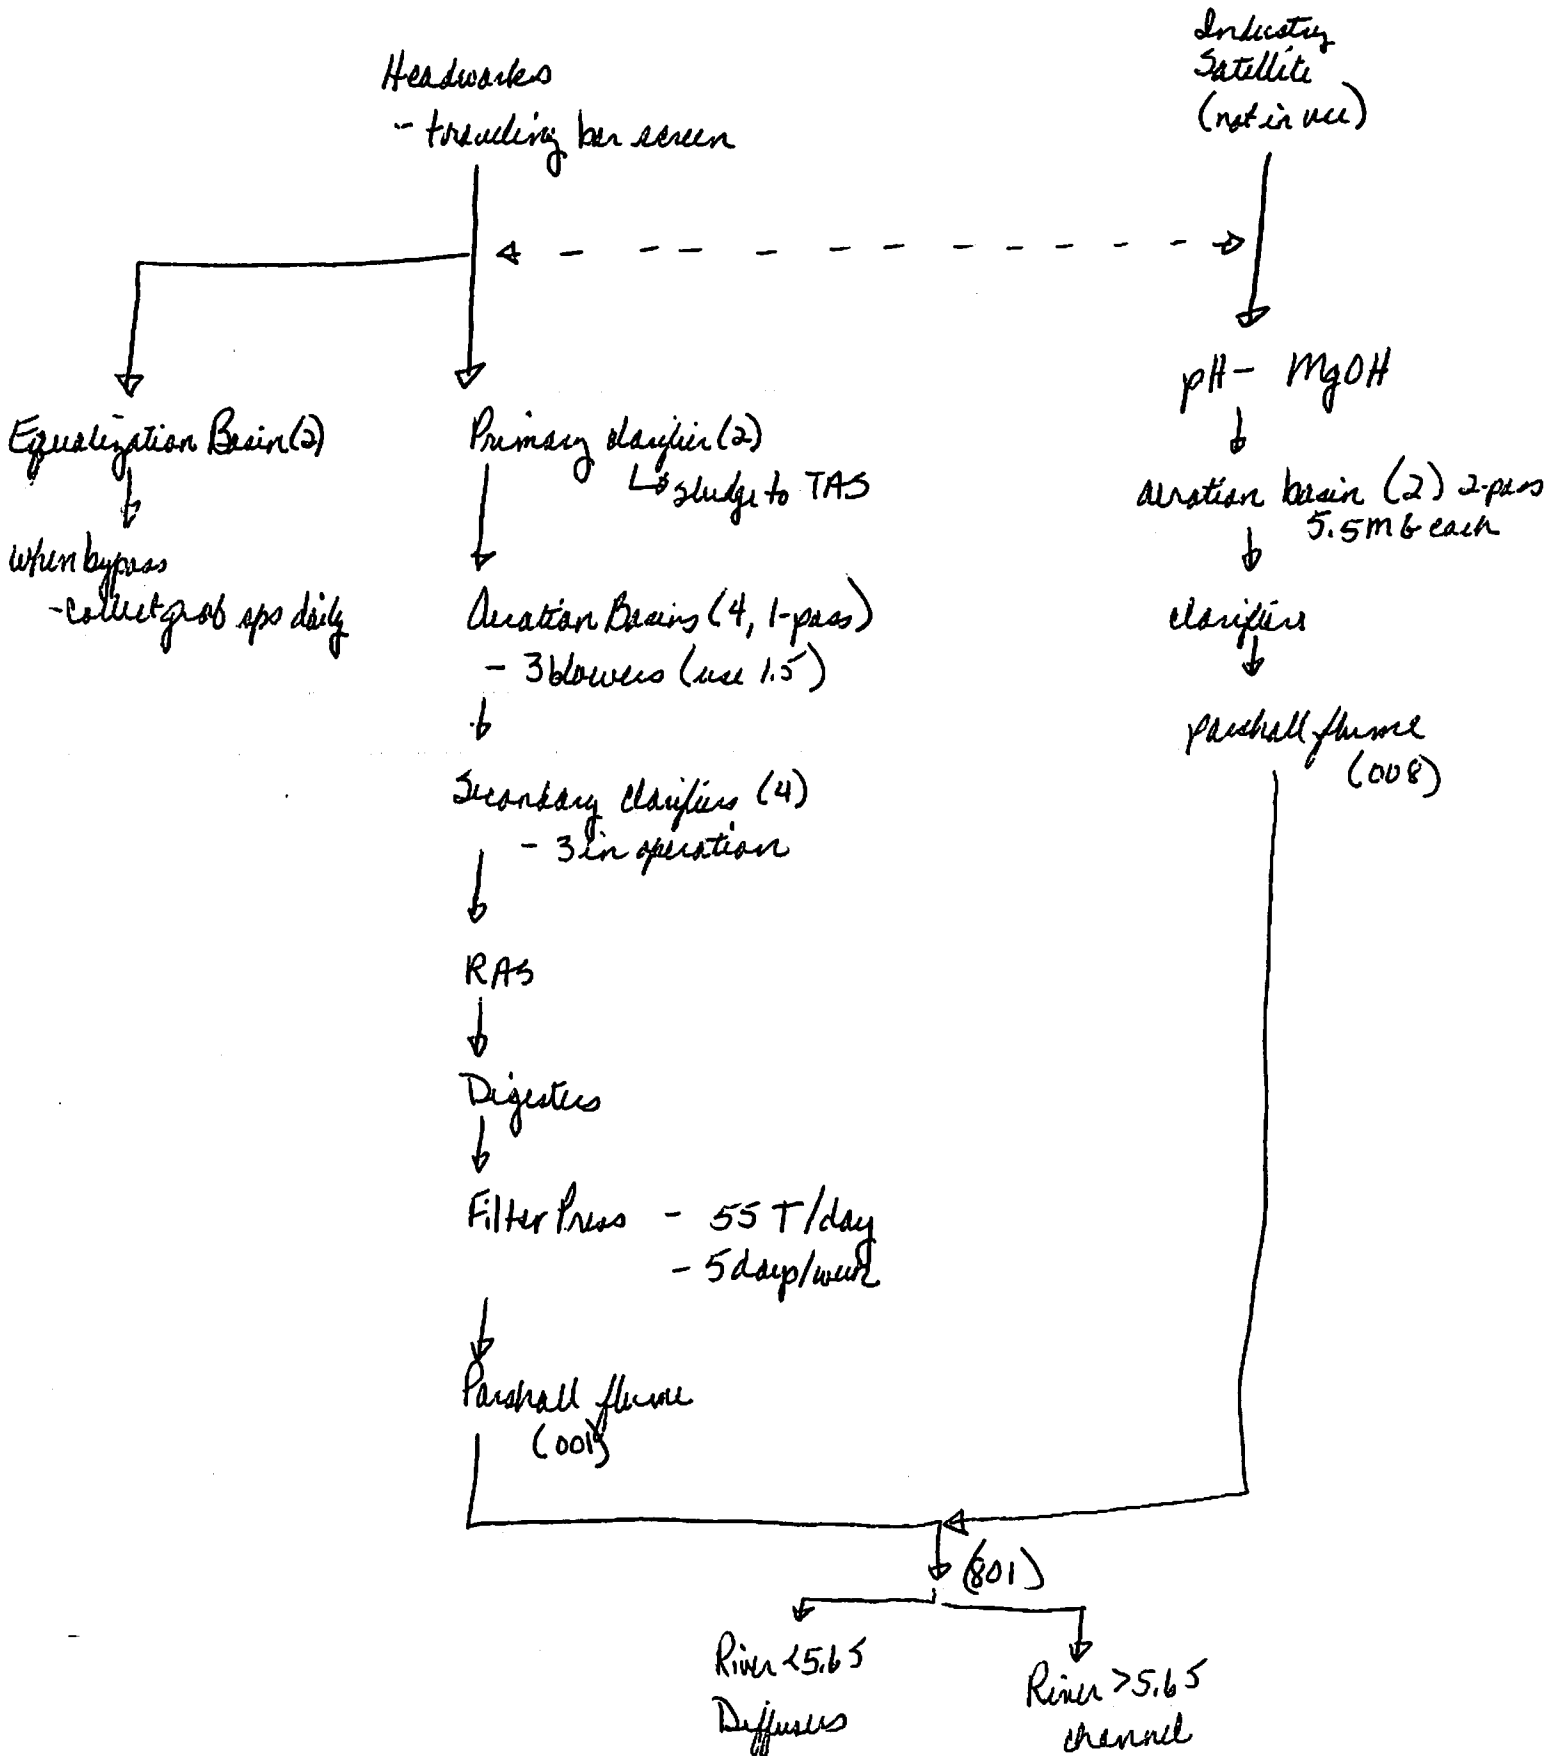 Headworks
- traveling bar screen
Industry
Satellite
(not in use)
Equalization Basin (2)
when bypass
- collect grab sps daily
Primary clarifier (2)
sludge to TAS
Aeration Basins (4, 1-pass)
- 3 blowers (use 1.5)
Secondary clarifiers (4)
- 3 in operation
RAS
Digesters
Filter Press - 55 T/day
- 5 days/week
Parshall flume
(001)
pH - MgOH
aeration basin (2) 2-pass
5.5 MG each
clarifiers
parshall flume
(008)
(801)
River <5.65
Diffusers
River >5.65
channel